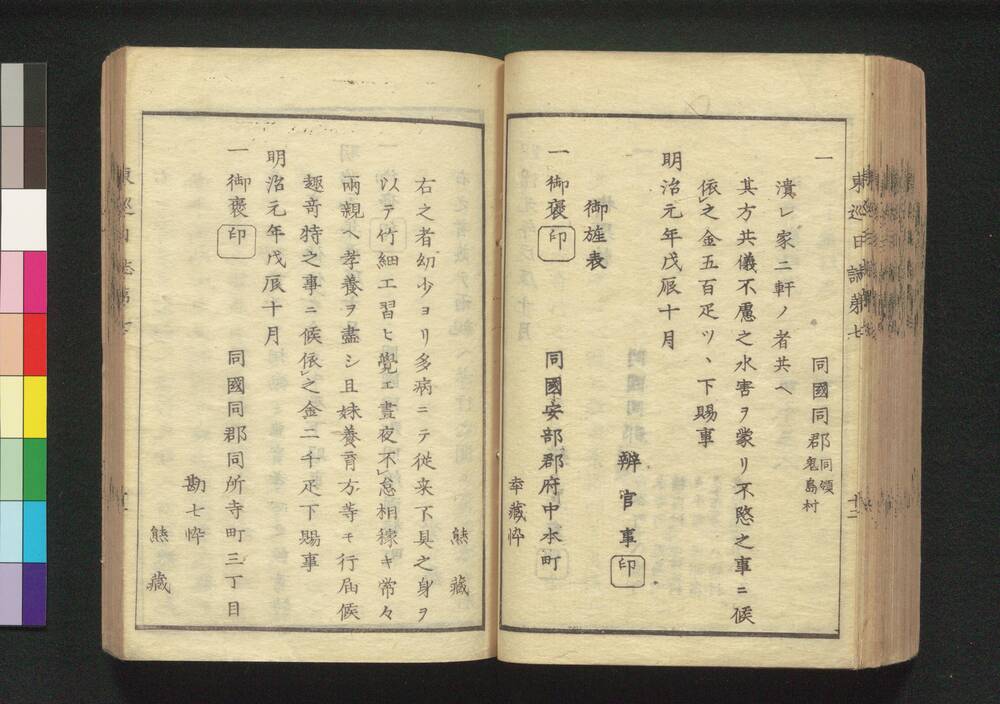 一 同國同郡同領鬼島村
潰レ家二軒ノ者共ヘ
其方共儀不慮之水害ヲ蒙リ不愍之事ニ候
依之金五百疋ツヽ下賜事
明治元年戊辰十月
辨官事印
御旌表
一御褒印 同國安部郡府中本町
幸藏忰
熊藏
右之者幼少ヨリ多病ニテ従来不具之身ヲ
以テ竹細工習ヒ覺エ晝夜不怠相稼キ常々
兩親ヘ孝養ヲ盡シ且妹養育方等モ行届候
趣奇特之事ニ候依之金二千疋下賜事
明治元年戊辰十月
一御褒印 同國同郡同所寺町三丁目
勘七忰
熊藏
東巡日誌第七
十二